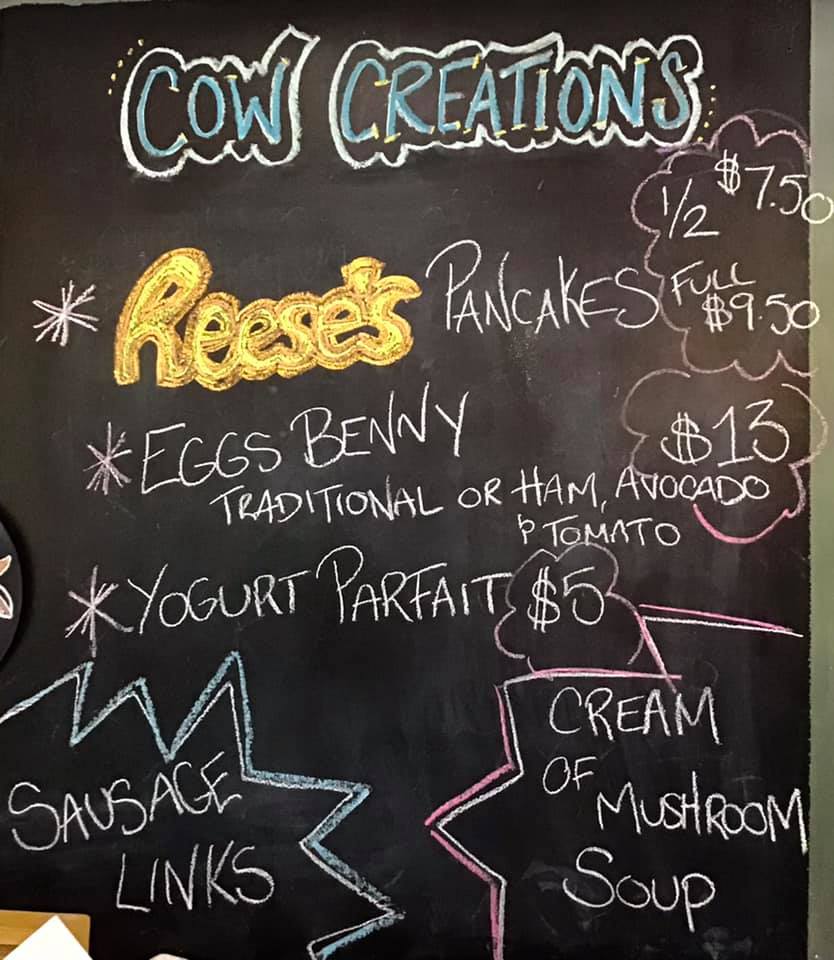 COW CREATIONS
1/2 $7.50
* Reese's PANCAKES FULL $9.50
* EGGS BENNY $13
TRADITIONAL OR HAM, AVOCADO
& TOMATO
* YOGURT PARFAIT $5
SAUSAGE
LINKS
CREAM
OF
MUSHROOM
SOUP